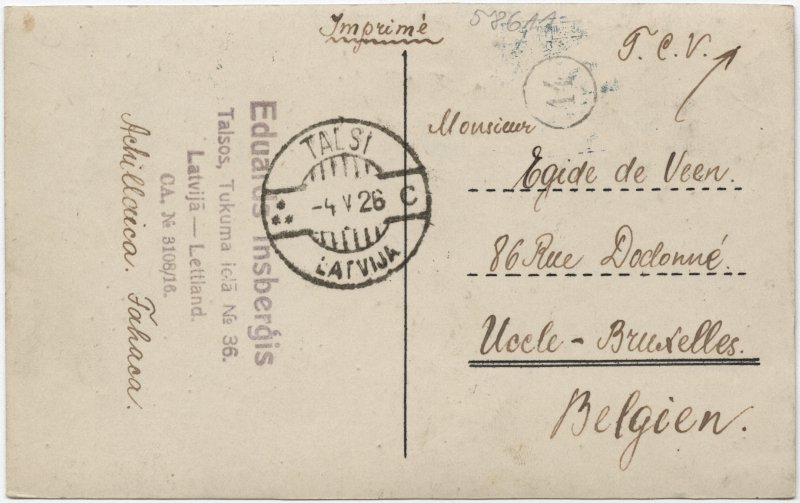 Imprimé
T. C. V.
14
Monsieur
Egide de Veen.
86 Rue Dodonné.
Uccle - Bruxelles.
Belgien.
TALSI
-4 V 26
C
LATVIJA
Eduards Insberģis
Talsos, Tukuma ielā № 36.
Latvijā — Lettland.
CA. № 3108/16.
Achilloica. Tahaca.